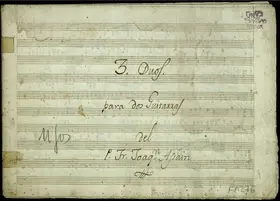 3. Duos.
para dos Guitarras
del
P. Fr. Joaqn. Asiain